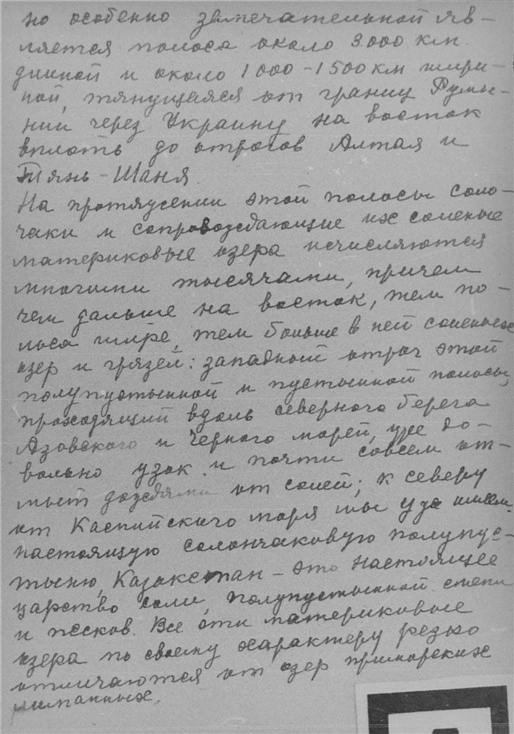 но особенно замечательной яв-
ляется полоса около 3.000 км
длиной и около 1000-1500 км шири-
ной, тянущаяся от границ Румы-
нии через Украину на восток
вплоть до отрогов Алтая и
Тянь-Шаня.
На протяжении этой полосы солон-
чаки и сопровождающие их соленые
материковые озера исчисляются
многими тысячами, причем
чем дальше на восток, тем по-
лоса шире, тем больше в ней соленых
озер и грязей: западный отрог этой
полупустынной и пустынной полосы,
проходящий вдоль северного берега
Азовского и Черного морей, уже до-
вольно узок и почти совсем от-
мыт дождями от солей; к северу
от Каспийского моря мы уже имеем
настоящую солончаковую полупус-
тыню, Казакстан - это настоящее
царство соли, полупустынной степи
и песков. Все эти материковые
озера по своему характеру резко
отличаются от озер приморских
лиманных.